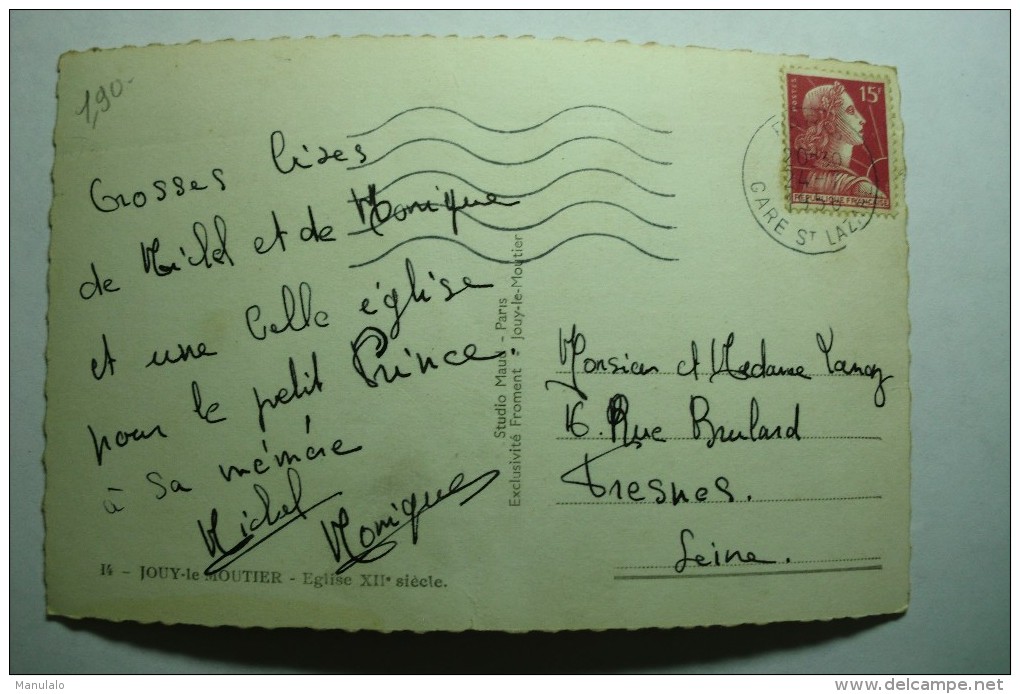 1,90-
Grosses bises
de Michel et de Monique
et une belle église
pour le petit Prince
à sa mémère
Michel Monique
14 - JOUY-le MOUTIER - Eglise XIIe siècle.
Studio Maus - Paris
Exclusivité Froment - Jouy-le-Moutier
POSTES
15F
REPUBLIQUE FRANÇAISE
GARE ST LAZ
Monsieur et Madame
16. Rue Brulard
Fresnes.
Seine.
Manulalo
delcampe.net